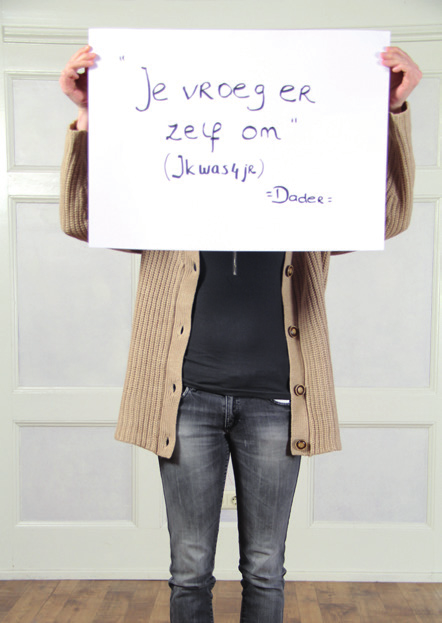 "Je vroeg er
zelf om"
(Ik was 4 jr)
=Dader=